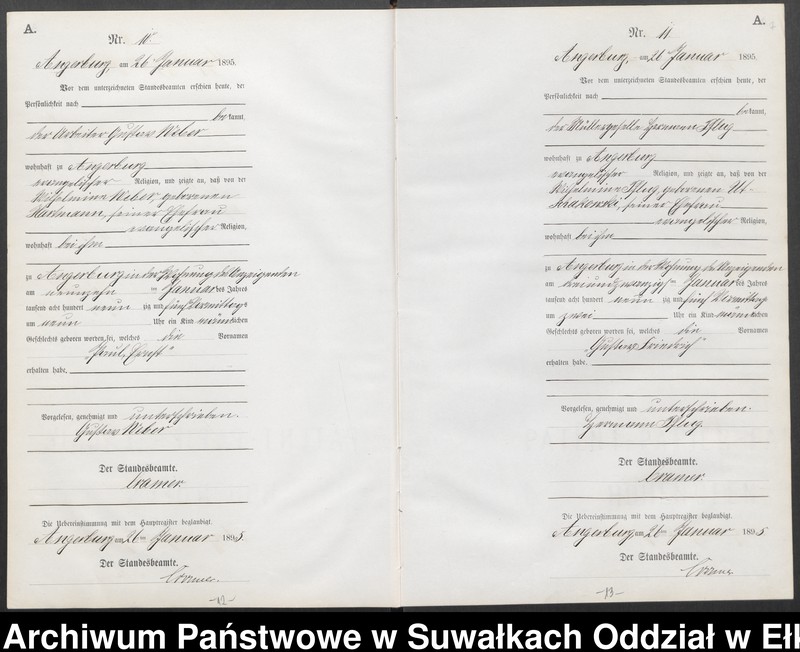 A.
Nr. 10.
Angerburg, am 26 Januar 1895.
Vor dem unterzeichneten Standesbeamten erschien heute, der
Persönlichkeit nach
bekannt,
der Arbeiter Gustav Weber
wohnhaft zu Angerburg
evangelischer Religion, und zeigte an, daß von der
Wilhelmine Weber, geborenen
Hartmann, seiner Ehefrau
evangelischer Religion,
wohnhaft bei ihm
zu Angerburg in der Wohnung des Anzeigenden
am neunzehn ten Januar des Jahres
tausend acht hundert neun zig und fünf Vormittags
um neun Uhr ein Kind männlichen
Geschlechts geboren worden sei, welches die Vornamen
"Paul Ernst"
erhalten habe.
Vorgelesen, genehmigt und unterschrieben.
Gustav Weber
Der Standesbeamte.
Cramer
Die Uebereinstimmung mit dem Hauptregister beglaubigt.
Angerburg am 26ten Januar 1895
Der Standesbeamte.
Cramer.
-12-
A.
Nr. 11
Angerburg, am 26 Januar 1895.
Vor dem unterzeichneten Standesbeamten erschien heute, der
Persönlichkeit nach
bekannt,
der Müllergeselle Hermann Pflug
wohnhaft zu Angerburg
evangelischer Religion, und zeigte an, daß von der
Wilhelmine Pflug, geborenen
seiner Ehefrau
evangelischer Religion,
wohnhaft bei ihm
zu Angerburg in der Wohnung des Anzeigenden
am ten Januar des Jahres
tausend acht hundert neun zig und fünf Vormittags
um zwei Uhr ein Kind männlichen
Geschlechts geboren worden sei, welches die Vornamen
"Gustav Friedrich"
erhalten habe.
Vorgelesen, genehmigt und unterschrieben.
Hermann Pflug.
Der Standesbeamte.
Cramer
Die Uebereinstimmung mit dem Hauptregister beglaubigt.
Angerburg am 26ten Januar 1895
Der Standesbeamte.
Cramer
-13-
Archiwum Państwowe w Suwałkach Oddział w Ełk